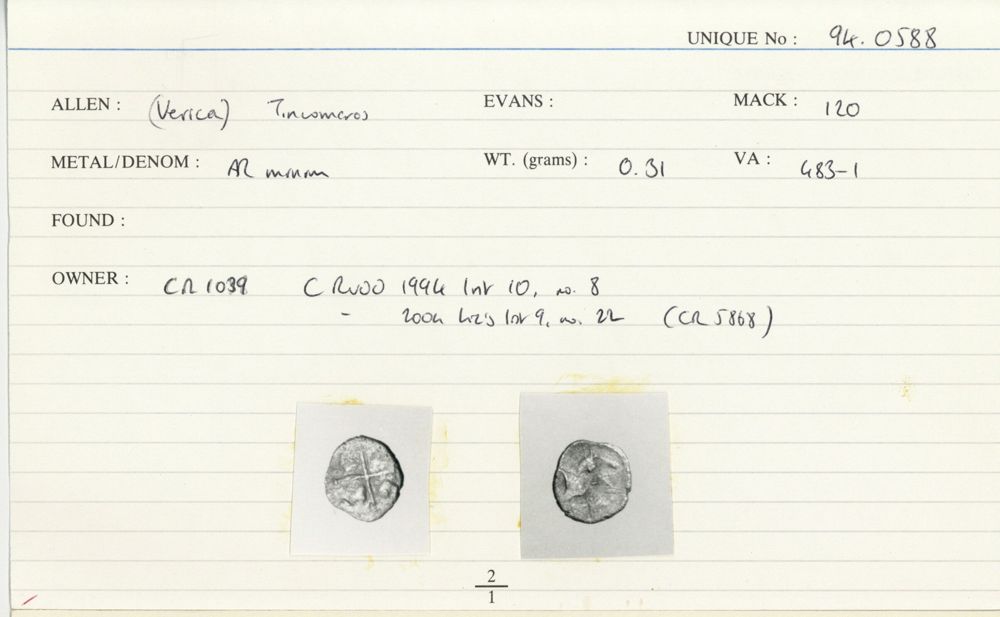 UNIQUE No : 94. 0588
ALLEN : (Verica) Tincomaros EVANS : MACK : 120
METAL/DENOM : AR minim WT. (grams) : 0.31 VA : 483-1
FOUND :
OWNER : CR 1039 C Rudd 1994 list 10, no. 8
- 2004 list 9, no. 22 (CR 5868)
2
1